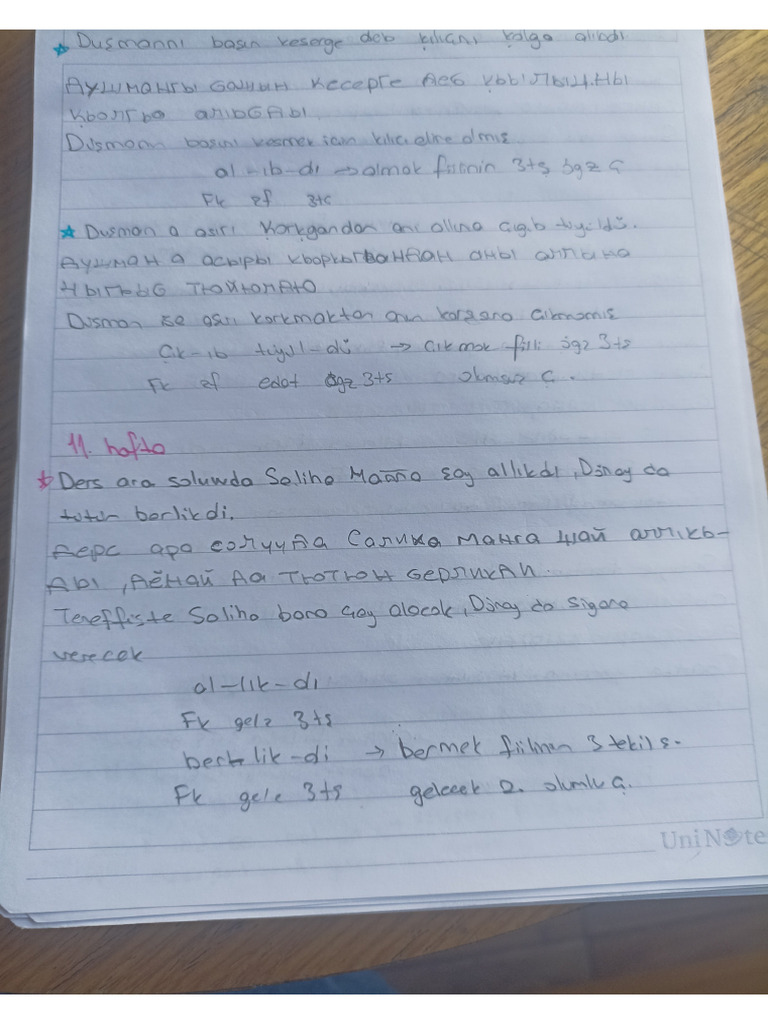 ★ Dusmannı basın keserge dep kılıçnı kolga alıbdı
Душманны башын кесерге деб къылычны
къолгъа алыбды.
Düşmanın başını kesmek için kılıcı eline almış
al-ıb-dı → almak fiilinin 3ts ögz ç
Fk zf 3ts
★ Dusman a asırı korkgandan anı allına çıgıb tüyüldü.
Душман а асыры къоркъгъандан аны аллына
чыгъыб тюйюлдю
Düşman ise aşırı korkmaktan onun karşısına çıkmamış
Çık-ıb tüyül-dü → çıkmak fiili ögz 3ts
Fk zf edat ögz 3ts olumsuz ç.
11. hafta
★ Ders ara soluwda Saliha Manna şay allıkdı, Dinay da
tütün berlikdi.
Дерс ара солууда Салиха манга шай аллыкъ-
ды, Дёнай да тютюн берликди.
Teneffüste Saliha bana çay alacak, Dönay da sigara
verecek
al-lık-dı
Fk gelz 3ts
ber-lik-di → bermek fiilinin 3 tekil ş.
Fk gelz 3ts gelecek z. olumlu ç.
UniNote